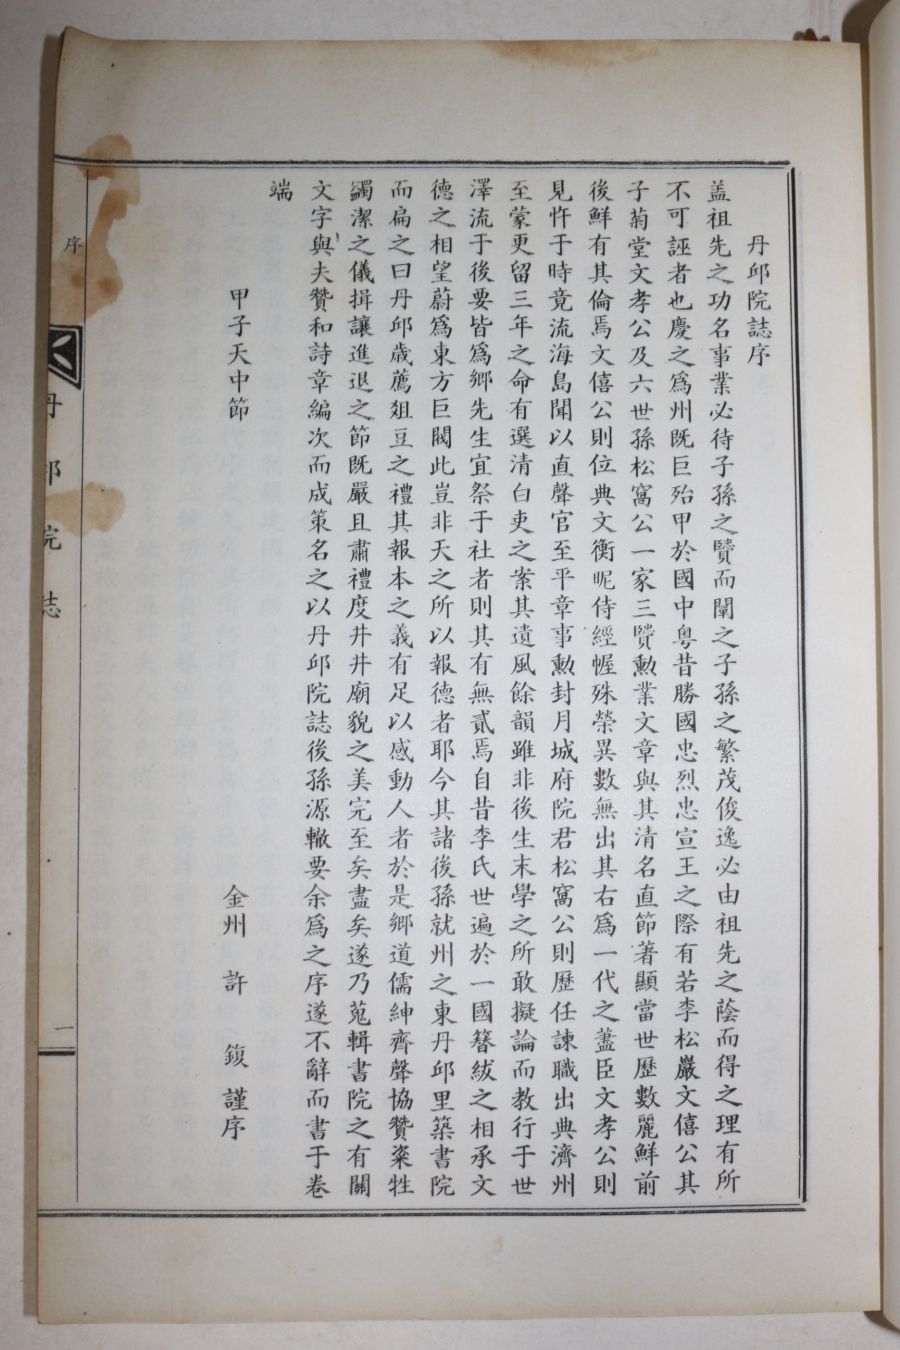 丹邱院誌序
盖祖先之功名事業必待子孫之贒而闡之子孫之繁茂俊逸必由祖先之蔭而得之理有所
不可誣者也慶之爲州既巨殆甲於國中粤昔勝國忠烈忠宣王之際有若李松巖文僖公其
子菊堂文孝公及六世孫松窩公一家三贒勲業文章與其清名直節著顯當世歷數麗鮮前
後鮮有其倫焉文僖公則位典文衡昵侍經幄殊榮異數無出其右爲一代之藎臣文孝公則
見忤于時竟流海島聞以直聲官至平章事勲封月城府院君松窩公則歷任諫職出典濟州
至蒙更留三年之命有選清白吏之案其遺風餘韻雖非後生末學之所敢擬論而教行于世
澤流于後要皆爲鄉先生宜祭于社者則其有無貳焉自昔李氏世遍於一國簪紱之相承文
德之相望蔚爲東方巨閥此豈非天之所以報德者耶今其諸後孫就州之東丹邱里築書院
而扁之曰丹邱歲薦俎豆之禮其報本之義有足以感動人者於是鄉道儒紳齊聲協贊粢牲
蠲潔之儀揖讓進退之節既嚴且肅禮度井井廟貌之美完至矣盡矣遂乃蒐輯書院之有關
文字與夫贊和詩章編次而成策名之以丹邱院誌後孫源轍要余爲之序遂不辭而書于卷
端
甲子天中節
金州 許 𨩱 謹序
序
丹邱院誌
一